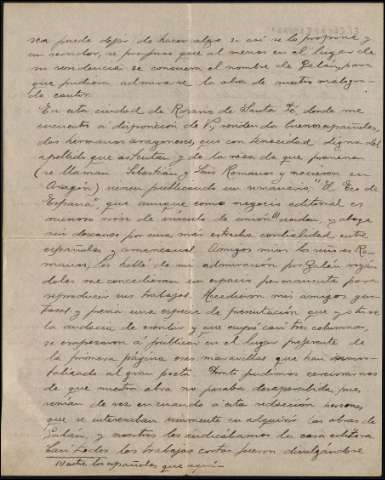 sea puedo dejar de hacer algo si así se lo propone y
un senador, se propuso que al menos en el lugar de
su residencia se conociera el nombre de Galán, para
que pudiera admirarse la obra de nuestro malogra-
do cantor.
En esta ciudad de Rosario de Santa Fé, donde me
encuentro a disposición de V, residen dos buenos españoles,
dos hermanos aragoneses, que con tenacidad digna del
apellido que ostentan y de la raza de que provienen
(se llaman Sebastián y Luis Romanos y nacieron en
Aragón) vienen publicando un semanario, "El Eco de
España" que aunque como negocio editorial es
menos sirve de vínculo de unión⁽¹⁾ residen, y aboga
sin descanso por una más estrecha cordialidad entre
españoles y americanos. Amigos míos los señores Ro-
manos, les hablé de mi admiración por Galán rogán-
doles me concedieran un espacio permanente para
reproducir sus trabajos. Accedieron mis amigos gus-
tosos, y previa una especie de
la molestia de escribir y que ocupó casi tres columnas,
se empezaron a publicar en el lugar preferente de
la primera página esas maravillas que han inmor-
talizado al gran poeta. Pronto pudimos convencernos
de que nuestra obra no pasaba desapercibida, pues
venían de vez en cuando a esta redacción personas
que se interesaban vivamente en adquirir las obras de
Galán, y nosotros les indicábamos la casa editora
Casi todos los trabajos cortos fueron divulgándose
(1) entre los españoles que aquí